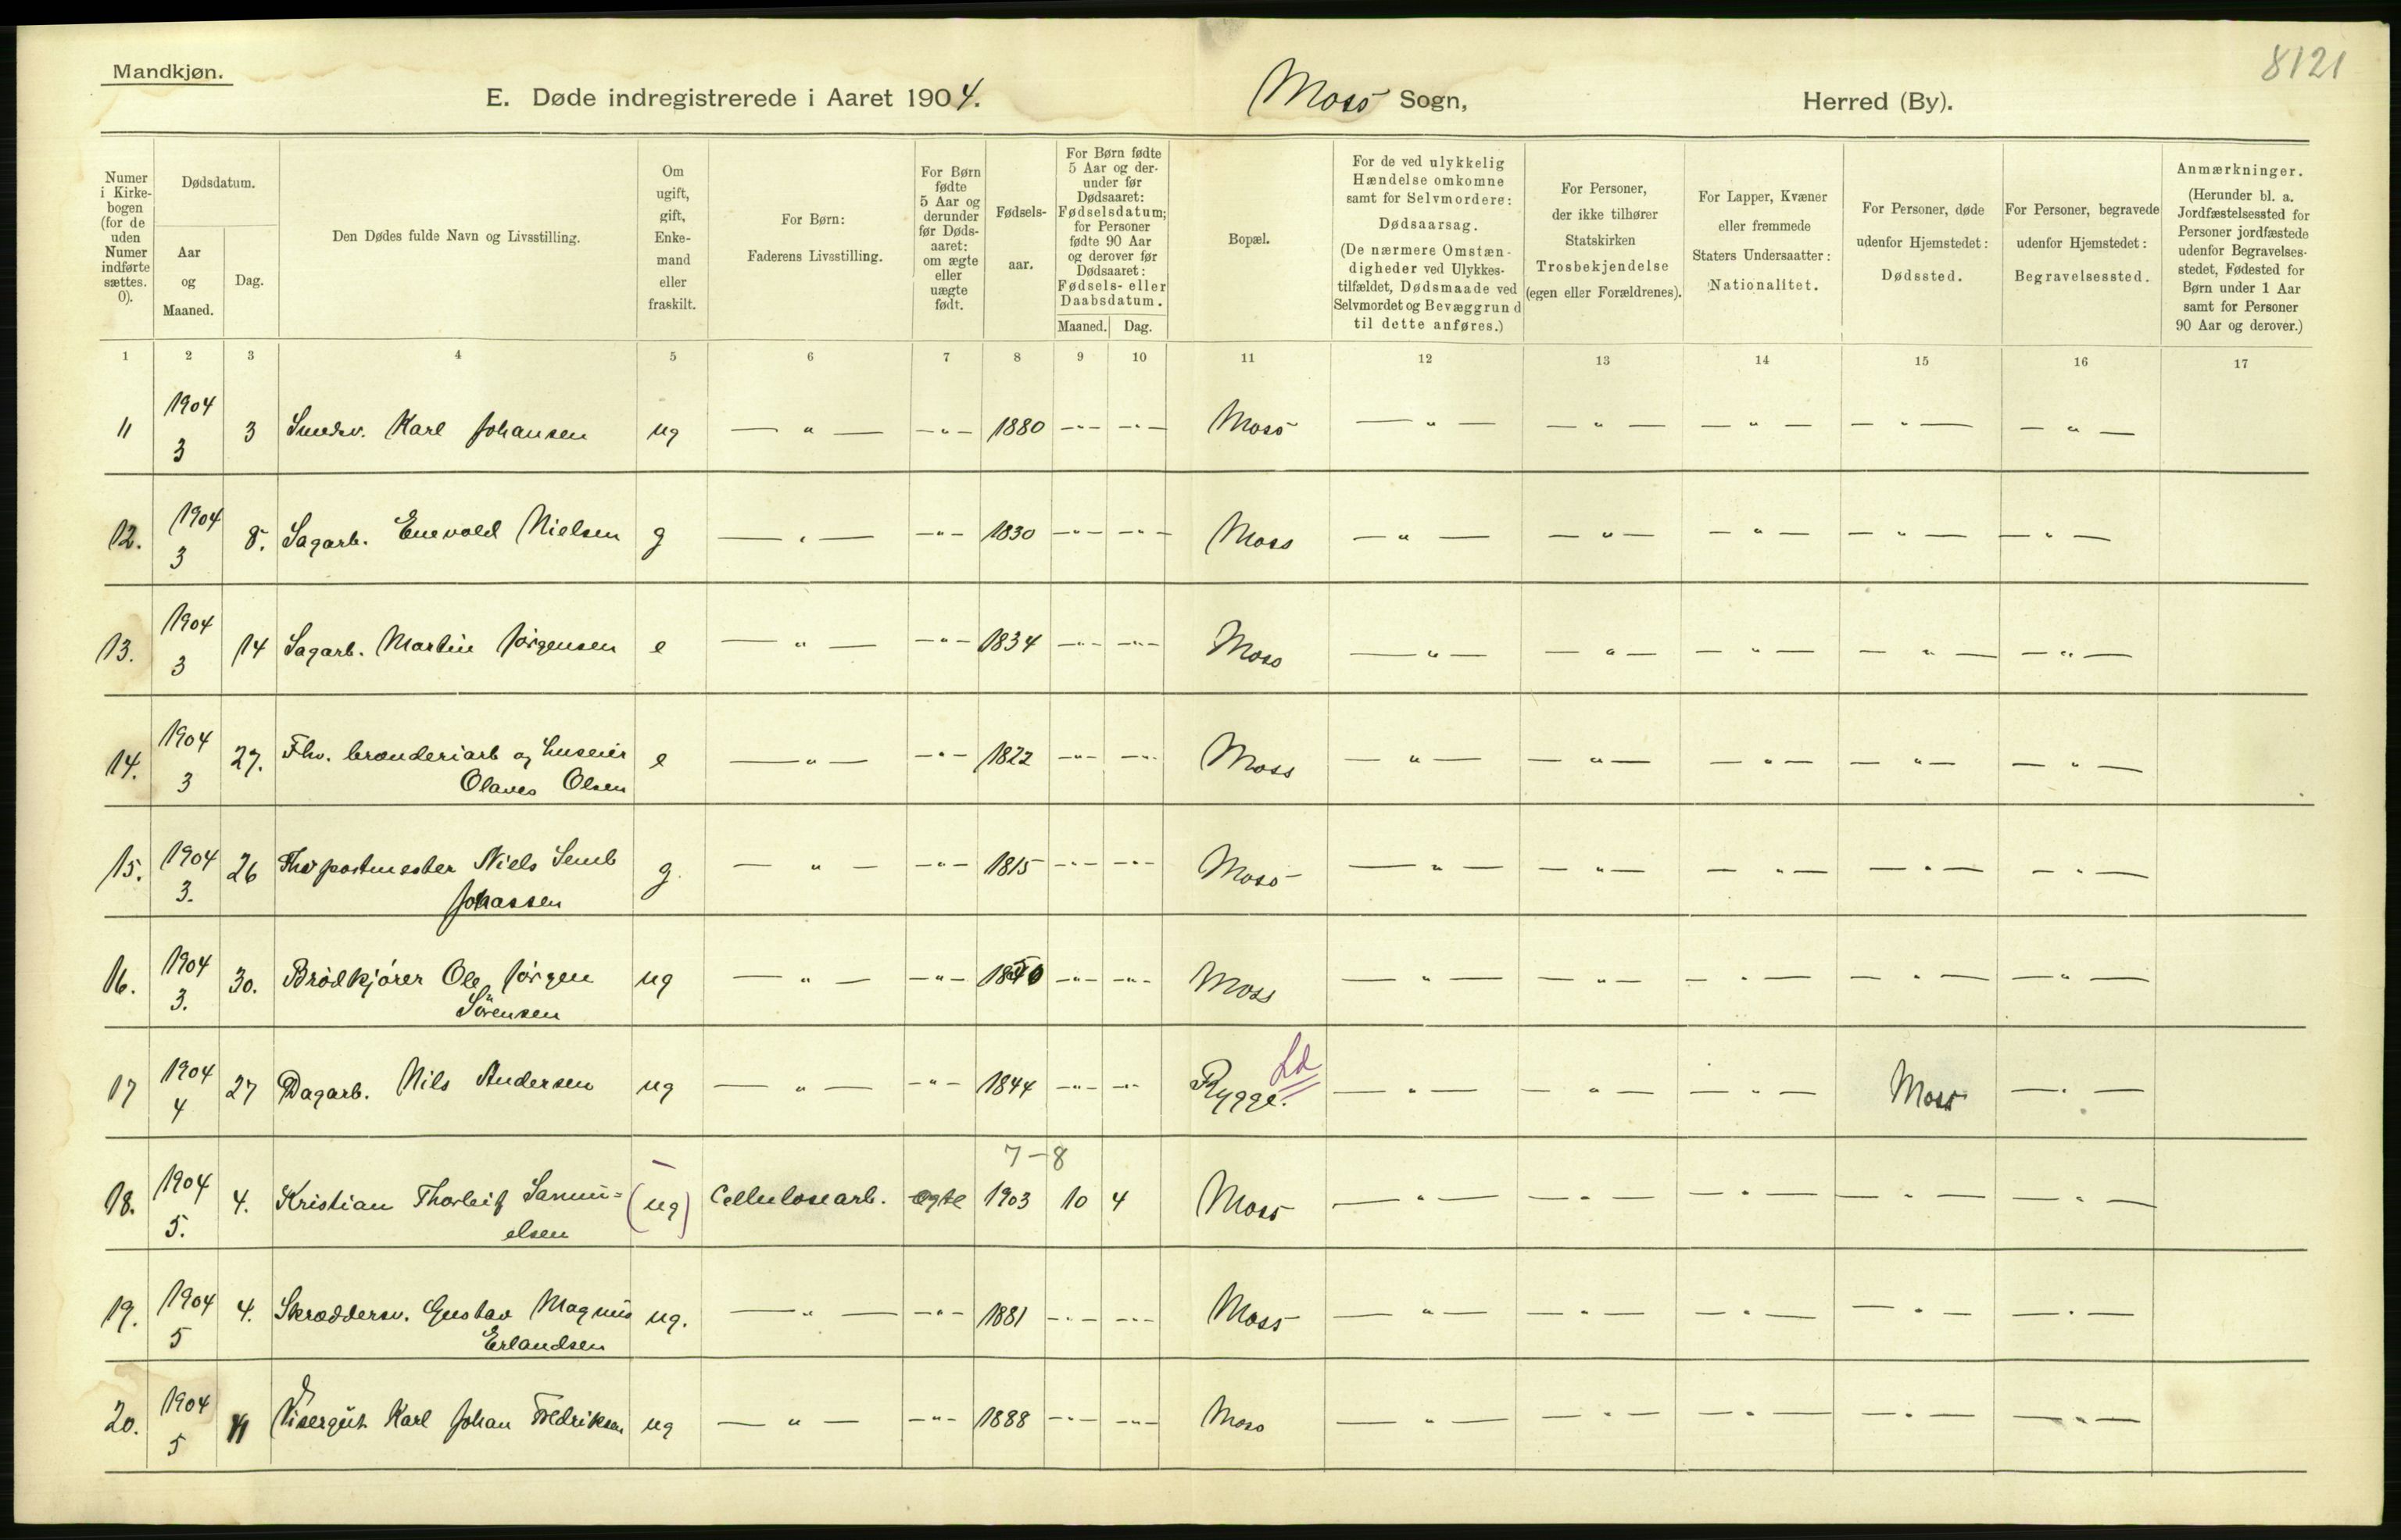 Mandkjøn.
8121
E. Døde indregistrerede i Aaret 1904.
Moss Sogn,
Herred (By).
Numer i Kirke-bogen (for de uden Numer indførte sættes. 0).
Dødsdatum.
Aar og Maaned.
Dag.
Den Dødes fulde Navn og Livsstilling.
Om ugift, gift, Enke-mand eller fraskilt.
For Børn: Faderens Livsstilling.
For Børn fødte 5 Aar og derunder før Døds-aaret: om ægte eller uægte født.
Fødsels-aar.
For Børn fødte 5 Aar og der-under før Dødsaaret: Fødselsdatum; for Personer fødte 90 Aar og derover før Dødsaaret: Fødsels- eller Daabsdatum.
Maaned. Dag.
Bopæl.
For de ved ulykkelig Hændelse omkomne samt for Selvmordere: Dødsaarsag. (De nærmere Omstæn-digheder ved Ulykkes-tilfældet, Dødsmaade ved Selvmordet og Bevæggrund til dette anføres.)
For Personer, der ikke tilhører Statskirken Trosbekjendelse (egen eller Forældrenes).
For Lapper, Kvæner eller fremmede Staters Undersaatter: Nationalitet.
For Personer, døde udenfor Hjemstedet: Dødssted.
For Personer, begravede udenfor Hjemstedet: Begravelsessted.
Anmærkninger. (Herunder bl. a. Jordfæstelsessted for Personer jordfæstede udenfor Begravelses-stedet, Fødested for Børn under 1 Aar samt for Personer 90 Aar og derover.)
1 2 3 4 5 6 7 8 9 10 11 12 13 14 15 16 17
11 1904 3 3 Smedsv. Karl Johansen ug — " — — " — 1880 — " — — " — Moss — " — — " — — " — — " — — " —
12. 1904 3 8. Sagarb. Enevold Nielsen g — " — — " — 1830 — " — — " — Moss — " — — " — — " — — " — — " —
13. 1904 3 14 Sagarb. Martin Jörgensen e — " — — " — 1834 — " — — " — Moss — " — — " — — " — — " — — " —
14. 1904 3 27. Fhv. brænderiarb og huseier e — " — — " — 1822 — " — — " — Moss — " — — " — — " — — " — — " —
Olaves Olsen
15. 1904 3. 26 Fhv postmester Niels Semb g. — " — — " — 1815 — " — — " — Moss — " — — " — — " — — " — — " —
Johassen
16. 1904 3. 30. Brödkjörer Ole Jörgen ug — " — — " — — " — — " — Moss — " — — " — — " — — " — — " —
Sörensen
17 1904 4 27 Dagarb. Nils Andersen ug — " — — " — 1844 — " — — " — Rygge. Ld — " — — " — — " — Moss — " —
7-8
18. 1904 5. 4. Kristian Thorleif Samu= (ug) Cellulosearb. ægte 1903 10 4 Moss — " — — " — — " — — " — — " —
elsen
19. 1904 5 4. Skræddersv. Gustav Magnus ug. — " — — " — 1881 — " — — " — Moss — " — — " — — " — — " — — " —
Erlandsen
20. 1904 5 Visergut Karl Johan Fredriksen ug — " — — " — 1888 — " — — " — Moss — " — — " — — " — — " — — " —